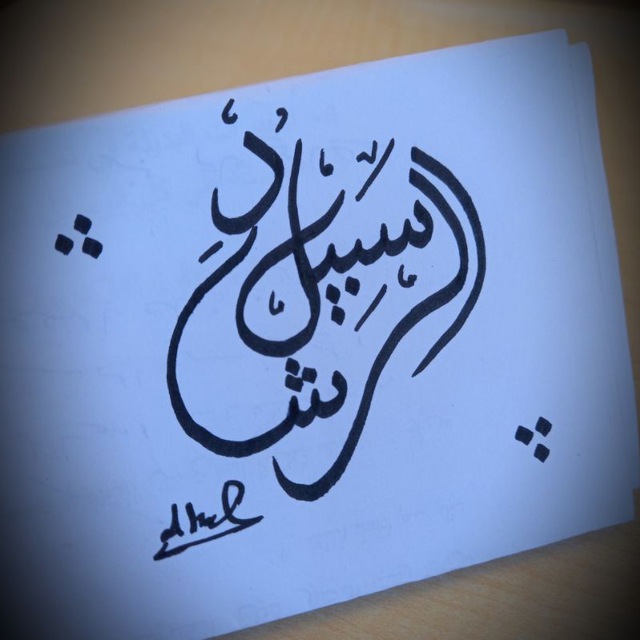 سَبِيل الرشاد